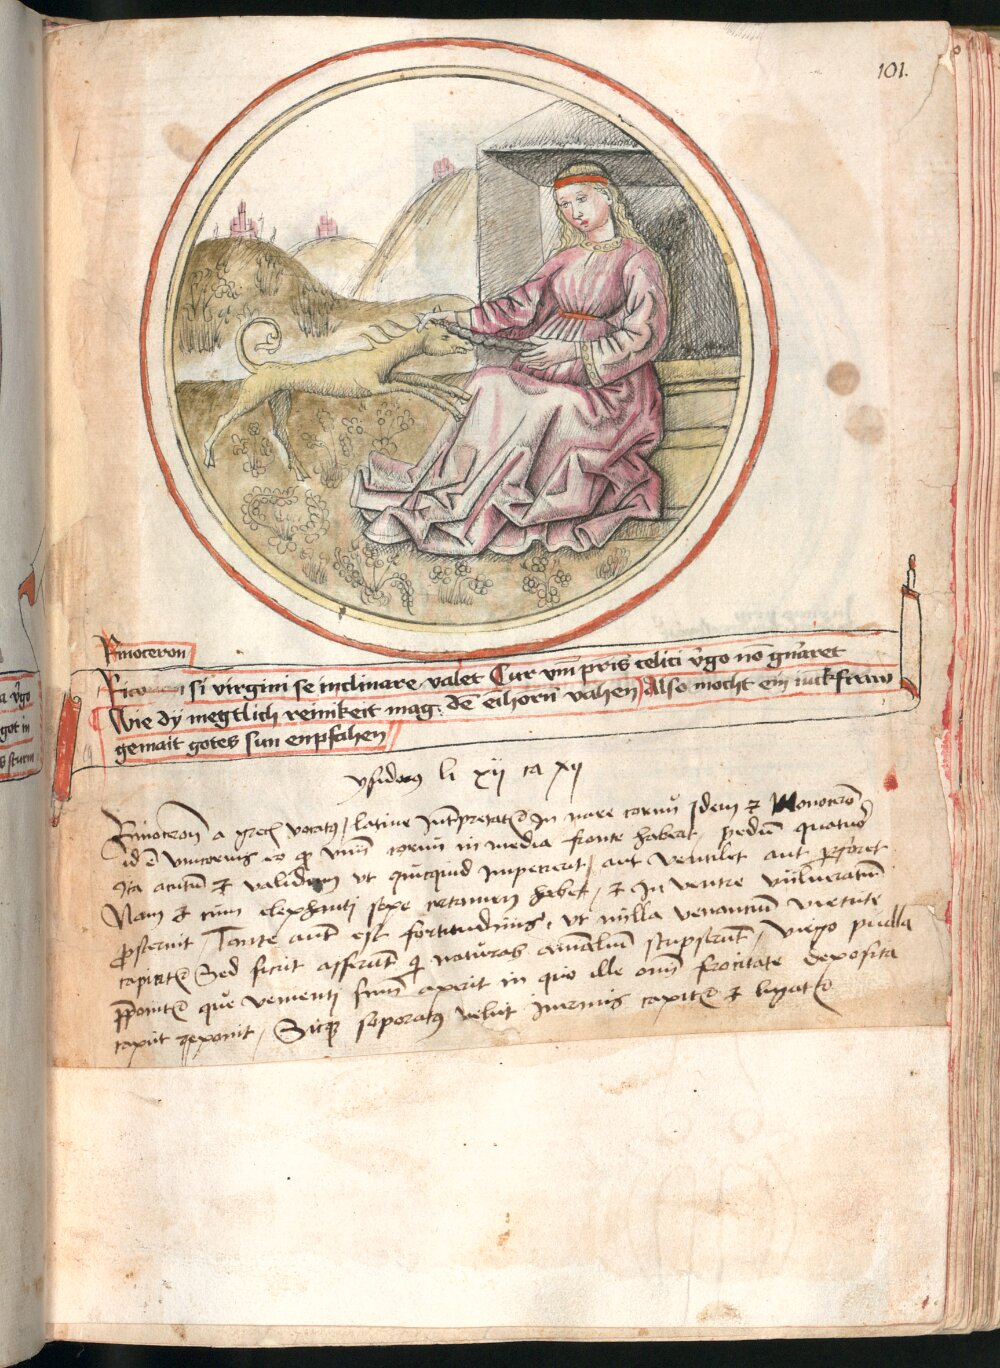 101.
Rinoceron
si virgini se inclinare valet Cur vni pris celici v̄go no gn̄aret
Wie dÿ megtlich reinikeit mag: dē eihorn vahen Also mocht ein
gemait gotes sun enpfahen
ysidorus li xij ca xij
Rinoceron a grecis vocatus / latine Int̄pretatᷣ In nare cornu Idem ⁊ Monoceron
id ē vnicornis eo qͥ vnū cornu in media fronte habeat, pedū quatuor
Ita acutū ⁊ validum vt quicquid impecierit / aut ventilet aut p̱foret
Nam ⁊ cum elephanti sepe certamen habet, ⁊ In ventre vulneratum
ꝓsternit, Tante aut̄ est fortitudinis, vt nulla venancium virtute
capiatᷣ Sed sicut asserūt qͥ naturas animaliū scripserūt, virgo puella
p̱ponitᷣ que venienti sinū aperit in quo ille omī ferocitate deposita
caput reponit, Sicqꝫ soporatus velut inermis capitᷣ ⁊
a v̄go
got in
s sturm